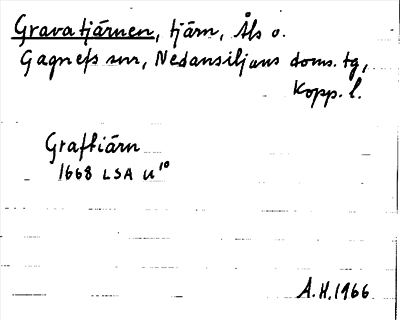 Gravatjärnen, tjärn, Åls o.
Gagnefs snr, Nedansiljans doms. tg,
Kopp. l.
Graftiärn
1668 LSA U¹⁰
A.H. 1966